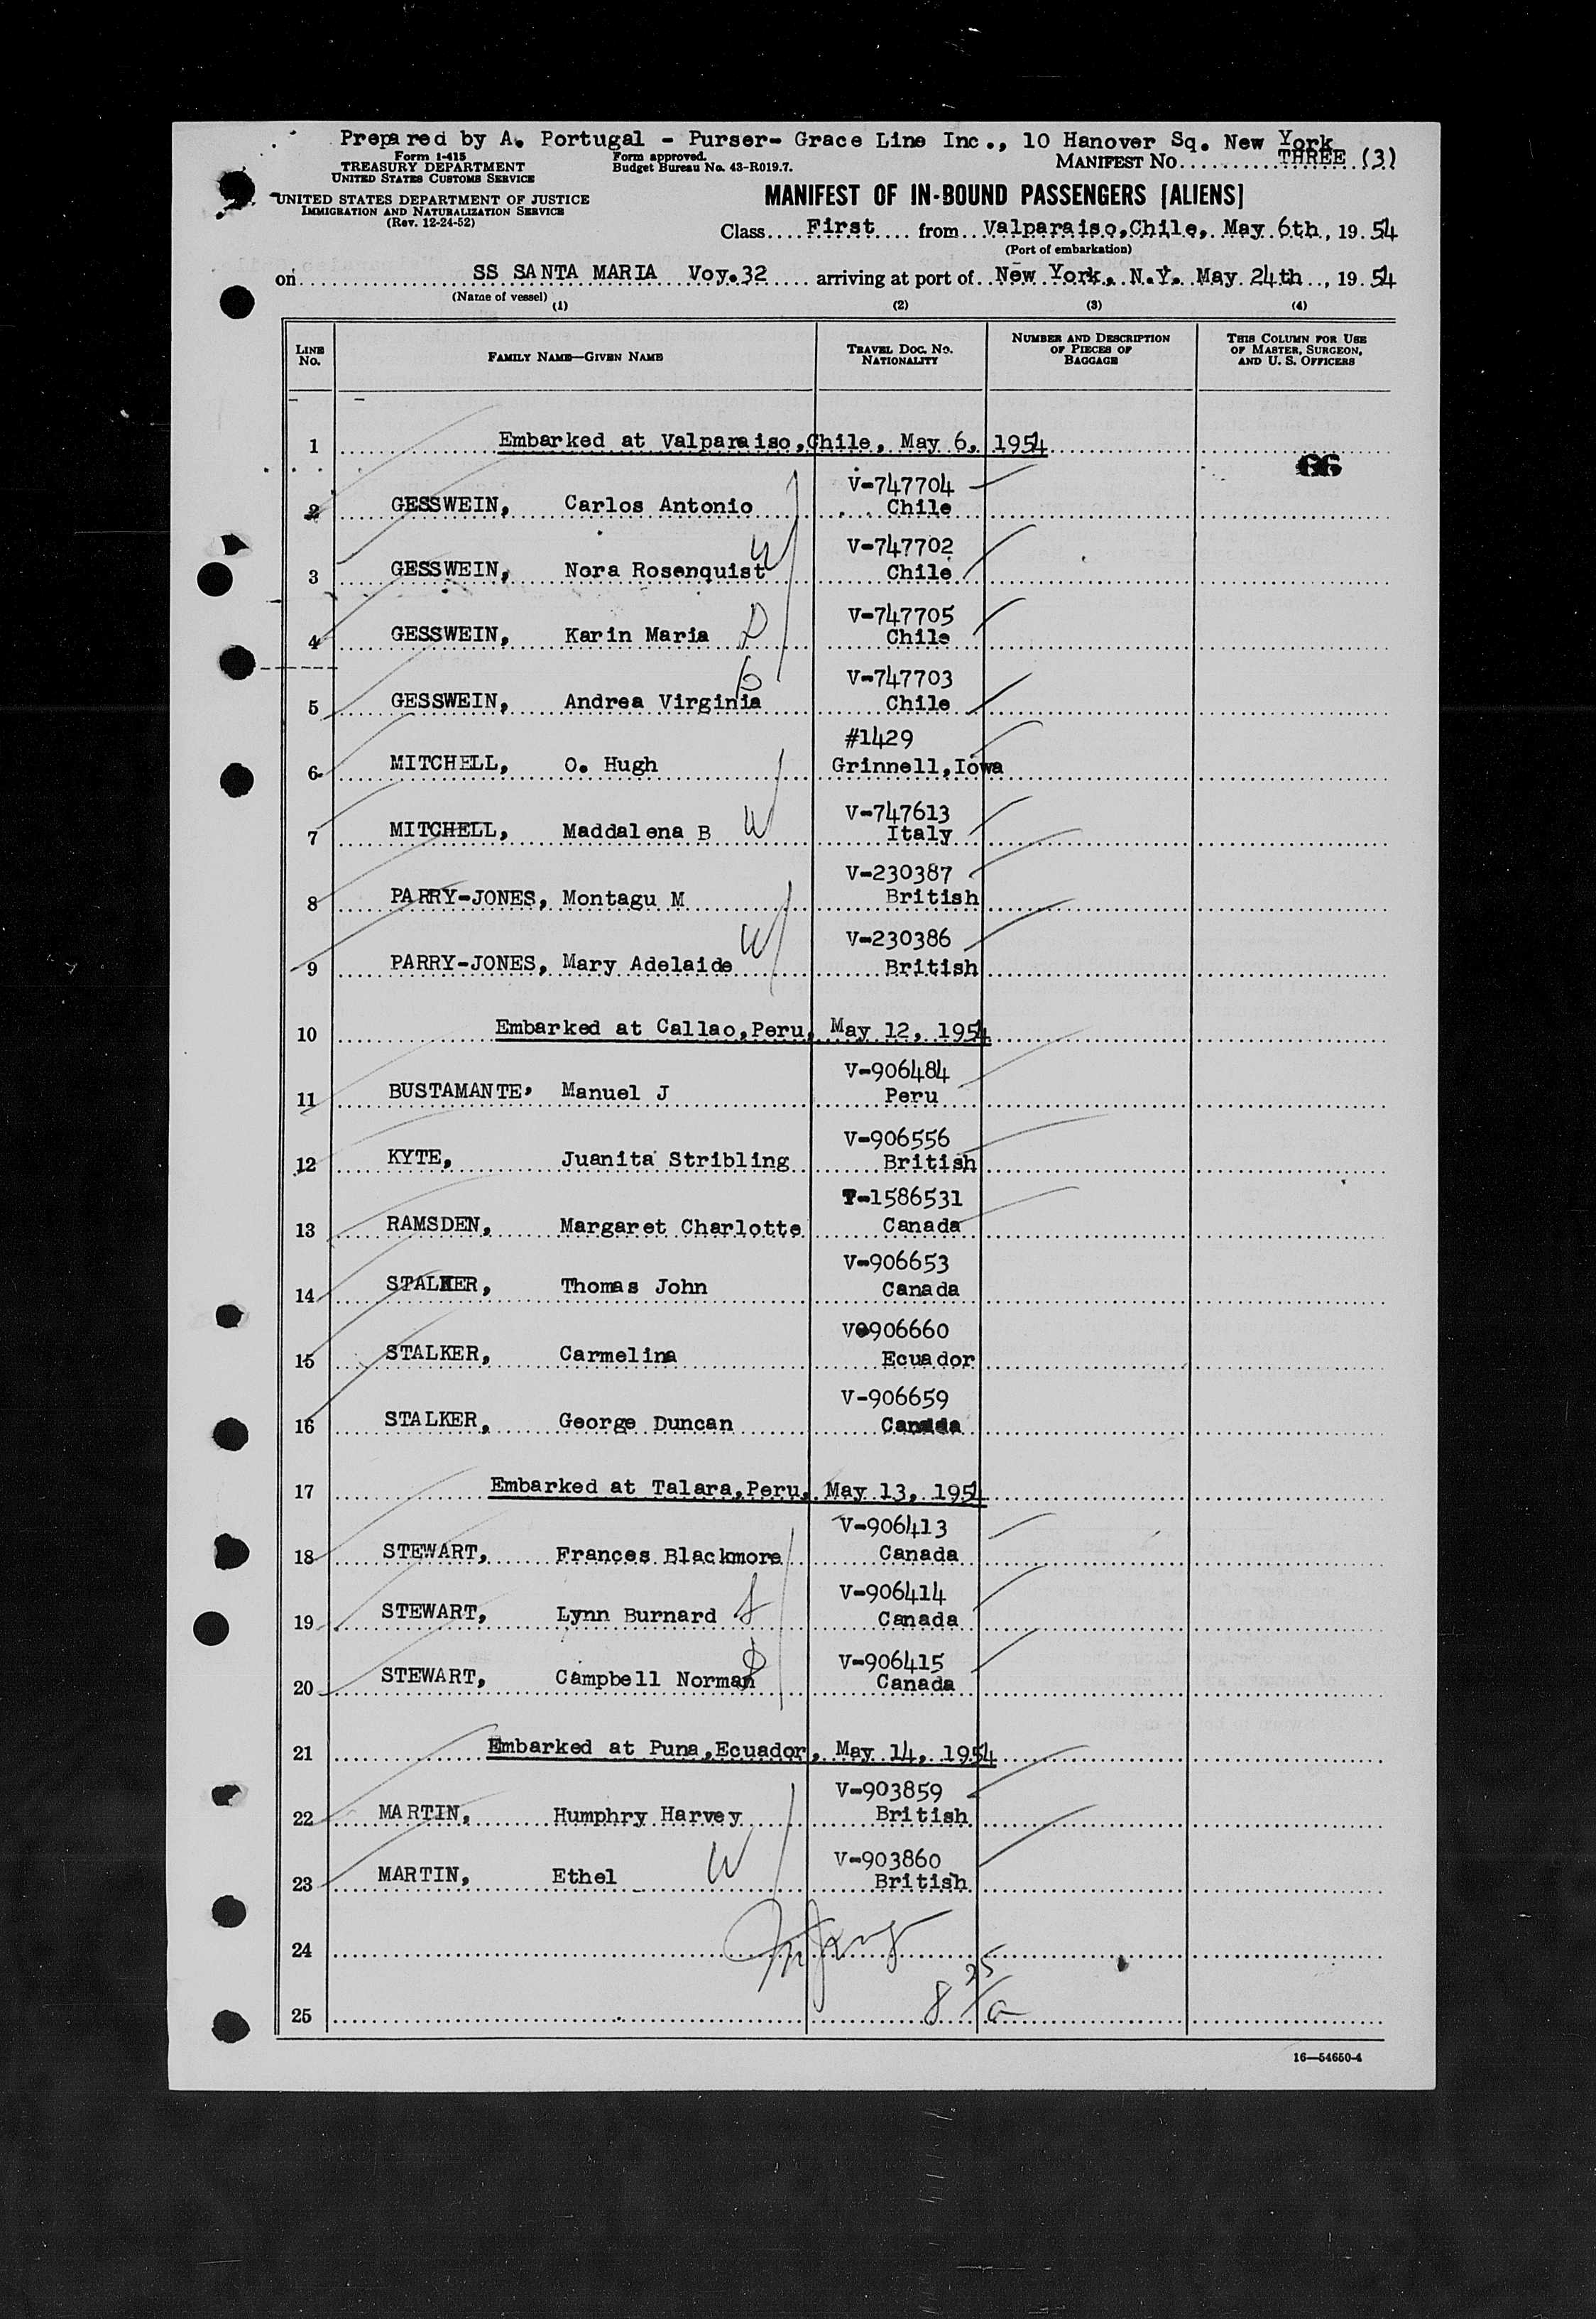 Prepared by A. Portugal - Purser- Grace Line Inc., 10 Hanover Sq. New York
Form I-415
TREASURY DEPARTMENT
UNITED STATES CUSTOMS SERVICE
Form approved.
Budget Bureau No. 43-R019.7.
MANIFEST NO. THREE (3)
UNITED STATES DEPARTMENT OF JUSTICE
IMMIGRATION AND NATURALIZATION SERVICE
(Rev. 12-24-52)
MANIFEST OF IN-BOUND PASSENGERS [ALIENS]
Class First from Valparaiso,Chile, May 6th, 19 54
(Port of embarkation)
on SS SANTA MARIA Voy.32 arriving at port of New York, N.Y. May 24th, 19 54
(Name of vessel)
(1) (2) (3) (4)
LINE NO. FAMILY NAME—GIVEN NAME TRAVEL DOC. NO. NATIONALITY NUMBER AND DESCRIPTION OF PIECES OF BAGGAGE THIS COLUMN FOR USE OF MASTER, SURGEON, AND U. S. OFFICERS
1 Embarked at Valparaiso,Chile, May 6, 1954
66
V-747704
2 GESSWEIN, Carlos Antonio Chile
V-747702
3 GESSWEIN, Nora Rosenquist W Chile
V-747705
4 GESSWEIN, Karin Maria D Chile
V-747703
5 GESSWEIN, Andrea Virginia Chile
#1429
6 MITCHELL, O. Hugh Grinnell,Iowa
V-747613
7 MITCHELL, Maddalena B W Italy
V-230387
8 PARRY-JONES, Montagu M British
V-230386
9 PARRY-JONES, Mary Adelaide W British
10 Embarked at Callao,Peru, May 12, 1954
V-906484
11 BUSTAMANTE, Manuel J Peru
V-906556
12 KYTE, Juanita Stribling British
T-1586531
13 RAMSDEN, Margaret Charlotte Canada
V-906653
14 STALKER, Thomas John Canada
V-906660
15 STALKER, Carmelina Ecuador
V-906659
16 STALKER, George Duncan Canada
17 Embarked at Talara,Peru, May 13, 1954
V-906413
18 STEWART, Frances Blackmore Canada
V-906414
19 STEWART, Lynn Burnard Canada
V-906415
20 STEWART, Campbell Norman Canada
21 Embarked at Puna,Ecuador, May 14, 1954
V-903859
22 MARTIN, Humphry Harvey British
V-903860
23 MARTIN, Ethel W British
24
25 8 25/a
16—54650-4